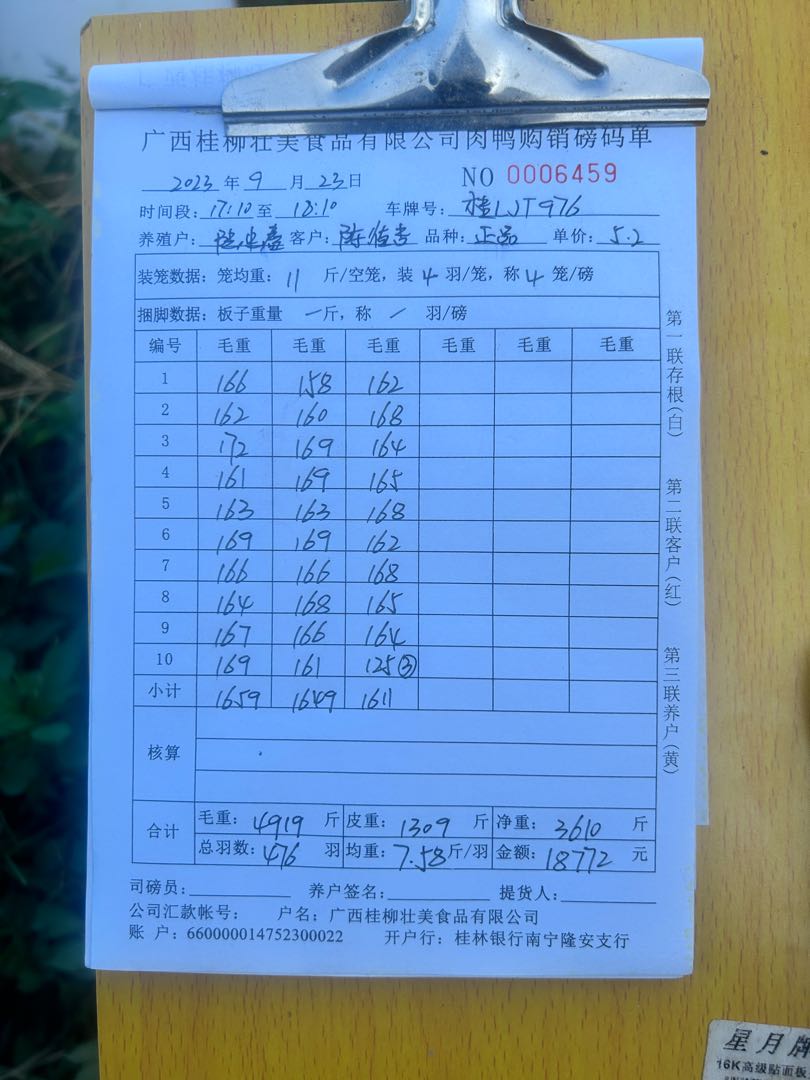 广西桂柳壮美食品有限公司肉鸭购销磅码单
2023 年 9 月 23 日 NO 0006459
时间段: 17:10 至 18:10 车牌号: 桂LJT976
养殖户: 客户: 品种: 正品 单价: 5.2
装笼数据: 笼均重: 11 斤/空笼, 装 4 羽/笼, 称 4 笼/磅
捆脚数据: 板子重量 一 斤, 称 / 羽/磅
编号 毛重 毛重 毛重 毛重 毛重 毛重
1 166 158 162
2 162 160 168
3 172 169 164
4 161 169 165
5 163 163 168
6 169 169 162
7 166 166 168
8 164 168 165
9 167 166 164
10 169 161 125③
小计 1659 1649 1611
核算
合计
毛重: 4919 斤 皮重: 1309 斤 净重: 3610 斤
总羽数: 476 羽 均重: 7.58 斤/羽 金额: 18772 元
司磅员: 养户签名: 提货人:
公司汇款帐号: 户名: 广西桂柳壮美食品有限公司
账 户: 660000014752300022 开户行: 桂林银行南宁隆安支行
第一联存根(白)
第二联客户(红)
第三联养户(黄)
星月牌
16K高级贴面板